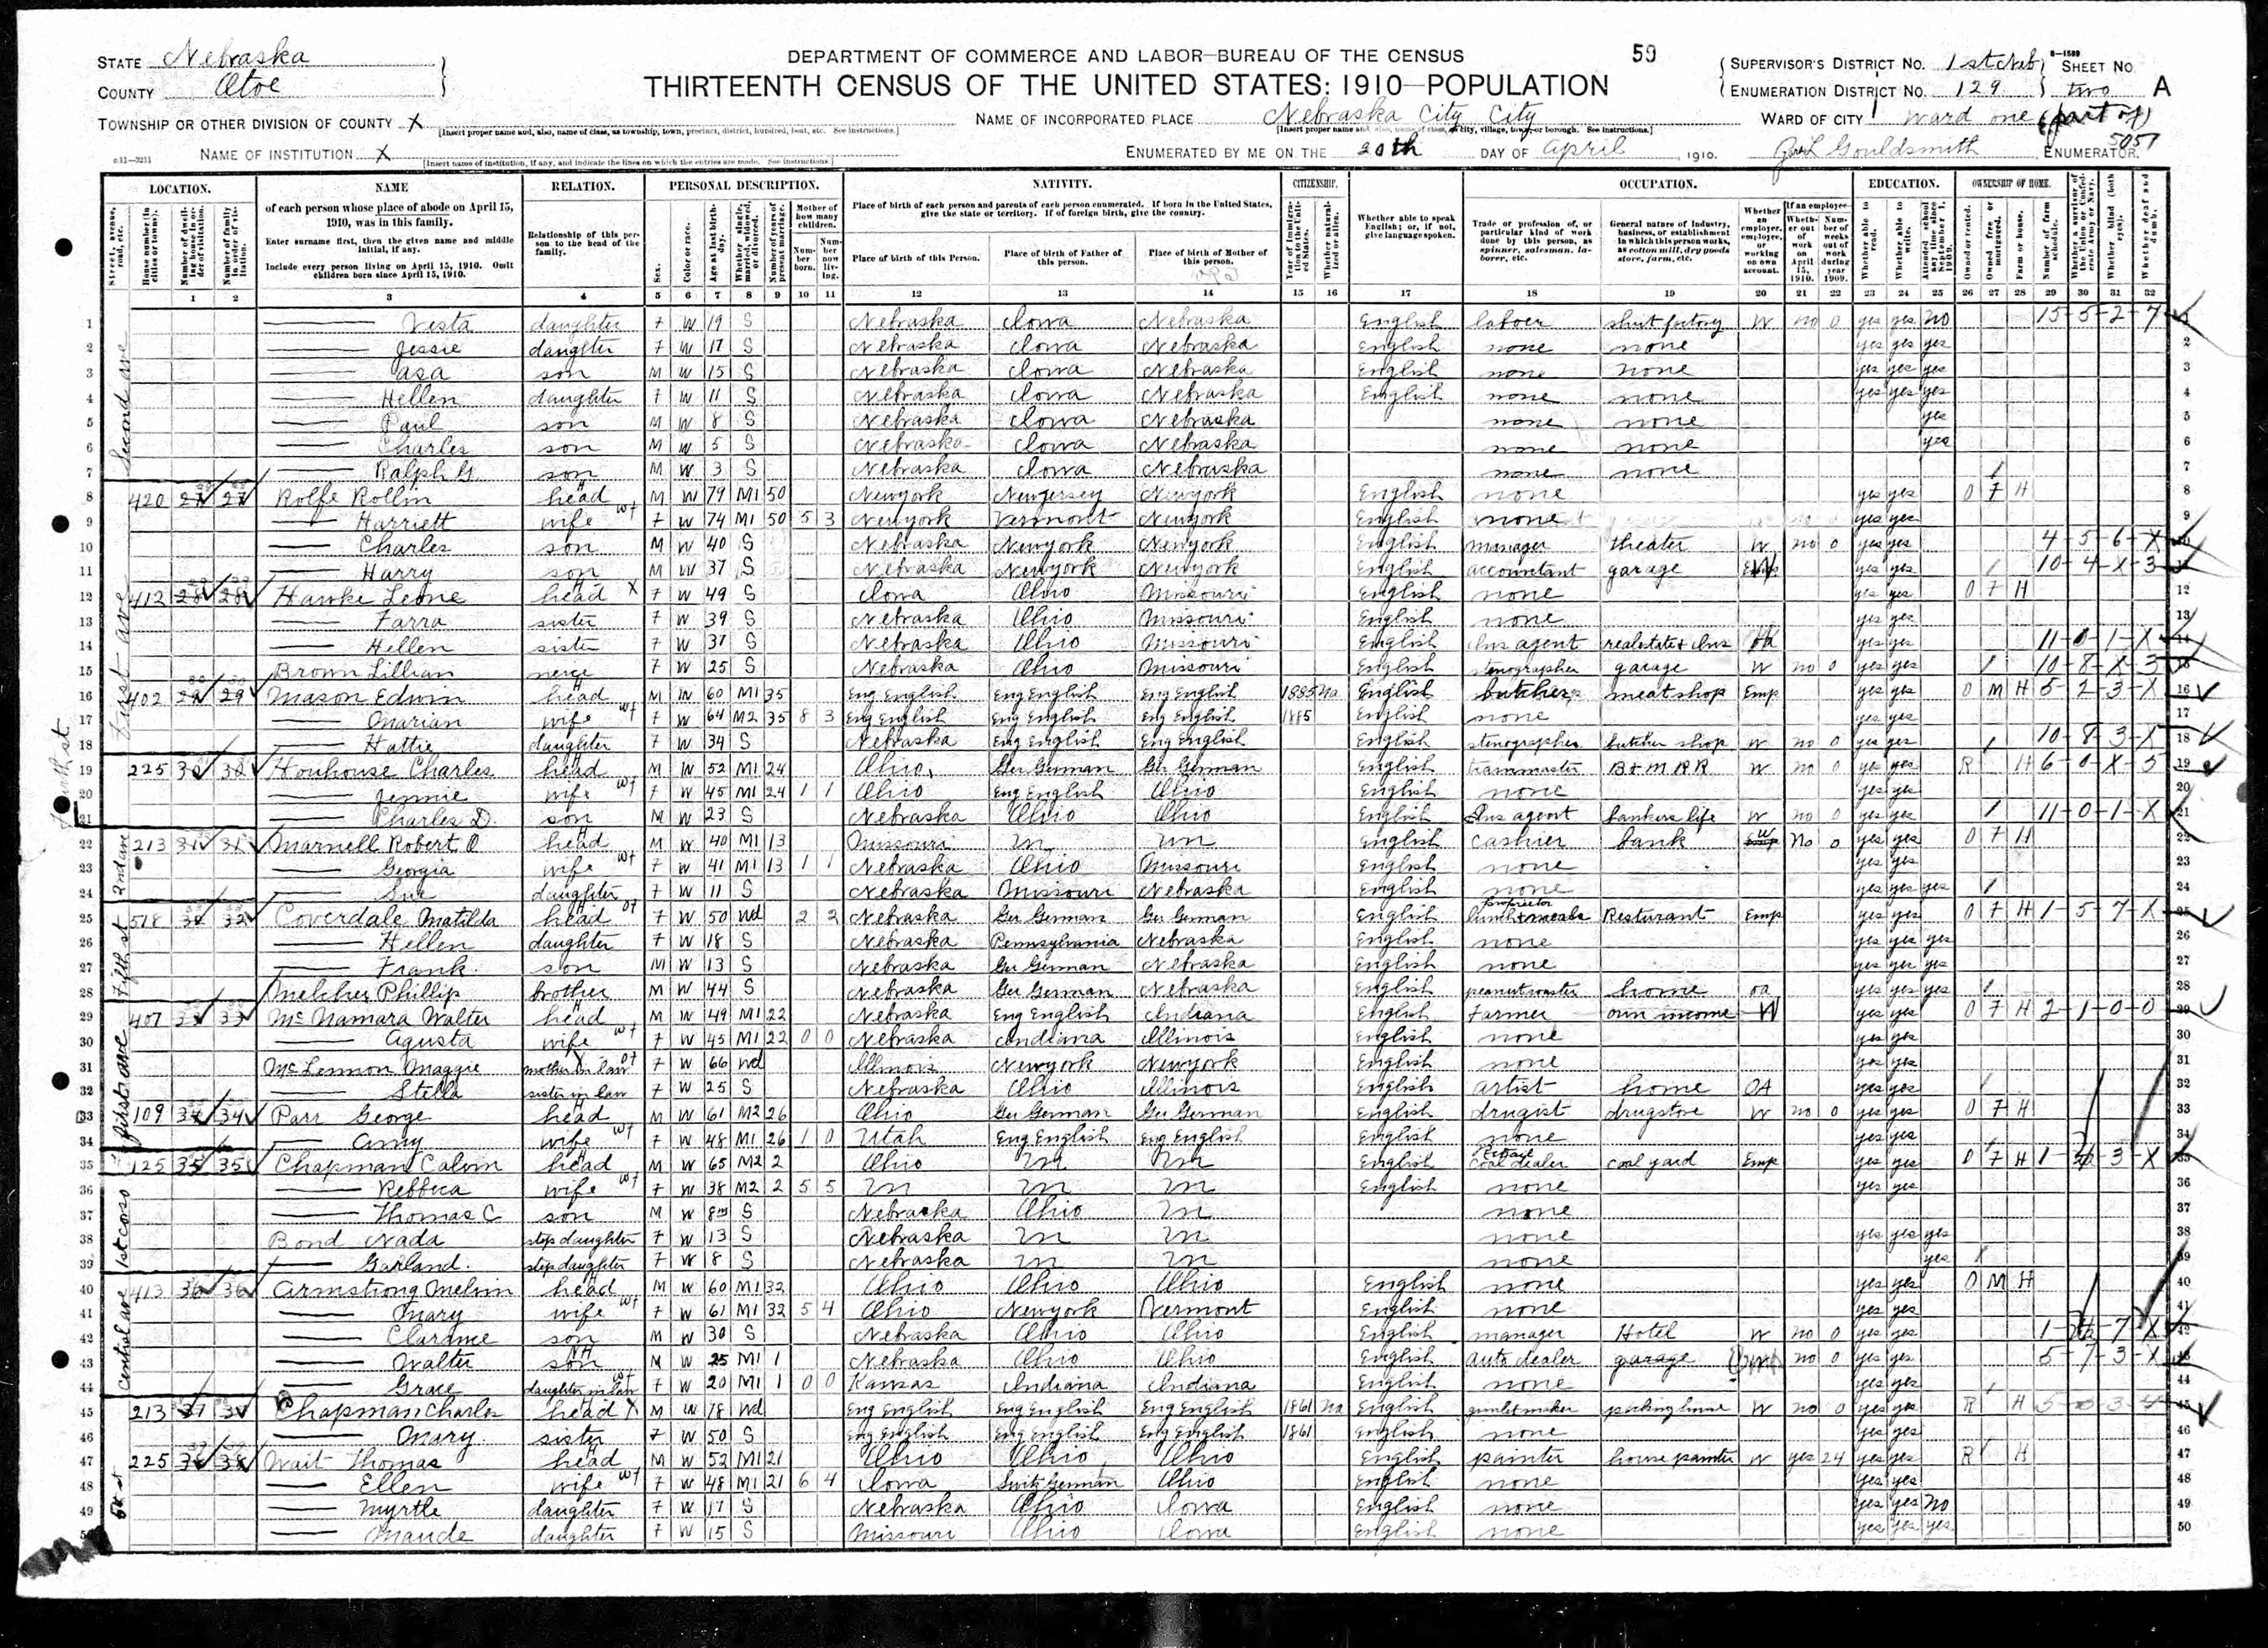 DEPARTMENT OF COMMERCE AND LABOR—BUREAU OF THE CENSUS
THIRTEENTH CENSUS OF THE UNITED STATES: 1910—POPULATION
59
STATE Nebraska
COUNTY Otoe
TOWNSHIP OR OTHER DIVISION OF COUNTY X
NAME OF INSTITUTION X
NAME OF INCORPORATED PLACE Nebraska City City
ENUMERATED BY ME ON THE 20th DAY OF April, 1910.
Gouldsmith, ENUMERATOR.
SUPERVISOR'S DISTRICT No. 1st Neb SHEET No.
ENUMERATION DISTRICT No. 129 two A
WARD OF CITY ward one (part of)
5057
LOCATION. NAME RELATION. PERSONAL DESCRIPTION. NATIVITY. CITIZENSHIP. OCCUPATION. EDUCATION. OWNERSHIP OF HOME.
of each person whose place of abode on April 15, 1910, was in this family.
Enter surname first, then the given name and middle initial, if any.
Include every person living on April 15, 1910. Omit children born since April 15, 1910.
Relationship of this person to the head of the family.
Place of birth of each person and parents of each person enumerated. If born in the United States, give the state or territory. If of foreign birth, give the country.
Place of birth of this Person. Place of birth of Father of this person. Place of birth of Mother of this person.
1 2 3 4 5 6 7 8 9 10 11 12 13 14 15 16 17 18 19 20 21 22 23 24 25 26 27 28 29 30 31 32
1 Vesta daughter F W 19 S Nebraska Iowa Nebraska English laboer shirt factory W no 0 yes yes no 15-5-2-7
2 Jessie daughter F W 17 S Nebraska Iowa Nebraska English none none yes yes yes
3 Asa son M W 15 S Nebraska Iowa Nebraska English none none yes yes yes
4 Hellen daughter F W 11 S Nebraska Iowa Nebraska English none none yes yes yes
5 Paul son M W 8 S Nebraska Iowa Nebraska none none yes
6 Charles son M W 5 S Nebraska Iowa Nebraska none none yes
7 Ralph G. son M W 3 S Nebraska Iowa Nebraska none none
8 420 27 27 Rolfe Rollin head M W 79 M1 50 Newyork Newjersey Newyork English none yes yes O F H
9 Harriett wife F W 74 M1 50 5 3 Newyork Vermont Newyork English none yes yes
10 Charles son M W 40 S Nebraska Newyork Newyork English manager theater W no 0 yes yes 4-5-6-X
11 Harry son M W 37 S Nebraska Newyork Newyork English accountant garage yes yes 10-4-X-3
12 412 28 28 Hawke Leone head F W 49 S Iowa Ohio Missouri English none yes yes O F H
13 Farra sister F W 39 S Nebraska Ohio Missouri English none yes yes
14 Hellen sister F W 31 S Nebraska Ohio Missouri English Ins agent realestate+Ins oa yes yes 11-0-1-X
15 Brown Lillian neice F W 25 S Nebraska Ohio Missouri English stenographer garage W no 0 yes yes 10-8-X-3
16 402 29 29 Mason Edwin head M W 60 M1 35 Eng English Eng English Eng English 1885 na English butcher meat shop Emp yes yes O M H 5-2-3-X
17 Marian wife F W 64 M2 35 8 3 Eng English Eng English Eng English 1885 English none yes yes
18 Hattie daughter F W 34 S Nebraska Eng English Eng English English stenographer butcher shop W no 0 yes yes 10-8-3-X
19 225 30 30 Houhouse Charles head M W 52 M1 24 Ohio Ger German Ger German English trainmaster B+M RR W no 0 yes yes R H 6-0-X-5
20 Jennie wife F W 45 M1 24 1 1 Ohio Eng English Ohio English none yes yes
21 Charles D. son M W 23 S Nebraska Ohio Ohio English Ins agent bankers life W no 0 yes yes 11-0-1-X
22 213 31 31 Marnell Robert O head M W 40 M1 13 Missouri un un English cashier bank W no 0 yes yes O F H
23 Georgia wife F W 41 M1 13 1 1 Nebraska Ohio Missouri English none yes yes
24 Sue daughter F W 11 S Nebraska Missouri Nebraska English none yes yes yes
25 518 32 32 Coverdale Matilda head F W 50 Wd 2 2 Nebraska Ger German Ger German English proprietor lunch+meals Resturant Emp yes yes O F H 1-5-7-X
26 Hellen daughter F W 18 S Nebraska Pennsylvania Nebraska English none yes yes yes
27 Frank son M W 13 S Nebraska Ger German Nebraska English none yes yes yes
28 Melcher Phillip brother M W 44 S Nebraska Ger German Nebraska English peanut roaster home oa yes yes yes
29 407 33 33 McNamara Walter head M W 49 M1 22 Nebraska Eng English Indiana English Farmer own income W yes yes O F H 2-1-0-0
30 Agusta wife F W 45 M1 22 0 0 Nebraska Indiana Illinois English none yes yes
31 McLennon Maggie mother in law F W 66 Wd Illinois Newyork Newyork English none yes yes
32 Stella sister in law F W 25 S Nebraska Ohio Illinois English artist home OA yes yes
33 109 34 34 Parr George head M W 61 M2 26 Ohio Ger German Ger German English drugist drugstore W no 0 yes yes O F H
34 Amy wife F W 48 M1 26 1 0 Utah Eng English Eng English English none yes yes
35 125 35 35 Chapman Calvin head M W 65 M2 2 Ohio un un English coal dealer coal yard Emp yes yes O F H
36 Rebbeca wife F W 38 M2 2 5 5 un un un English none yes yes
37 Thomas C son M W S Nebraska Ohio un none
38 Bond Nada step daughter F W 13 S Nebraska un un none yes yes yes
39 Garland step daughter F W 8 S Nebraska un un none yes
40 413 36 36 Armstrong Melvin head M W 60 M1 32 Ohio Ohio Ohio English none yes yes O M H
41 Mary wife F W 61 M1 32 5 4 Ohio Newyork Vermont English none yes yes
42 Clarence son M W 30 S Nebraska Ohio Ohio English manager Hotel W no 0 yes yes
43 Walter son M W 25 M1 1 Nebraska Ohio Ohio English auto dealer garage no 0 yes yes 5-7-3-X
44 Grace daughter in law F W 20 M1 1 0 0 Kansas Indiana Indiana English none yes yes
45 213 37 37 Chapman Charles head M W 78 Wd Eng English Eng English Eng English 1861 na English packing house W no 0 yes yes R H
46 Mary sister F W 50 S Eng English Eng English Eng English 1861 English none yes yes
47 225 38 38 Wait Thomas head M W 52 M1 21 Ohio Ohio Ohio English painter house painter W yes 24 yes yes R H
48 Ellen wife F W 48 M1 21 6 4 Iowa Switz German Ohio English none yes yes
49 Myrtle daughter F W 17 S Nebraska Ohio Iowa English none yes yes no
50 Maude daughter F W 15 S Missouri Ohio Iowa English none yes yes yes
Second ave
First ave
Fourth st
2nd ave
Fifth st
first ave
1st corso
Central ave
5th st